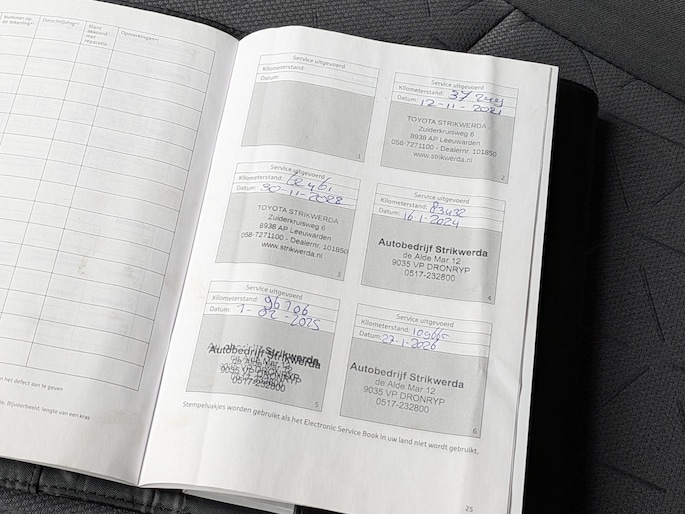 Nummer op de tekening*)
Omschrijving*)
Klant akkoord met reparatie
Opmerkingen*)
n het defect aan te geven
le. Bijvoorbeeld: lengte van een kras
Service uitgevoerd
Kilometerstand:
Datum:
1
Service uitgevoerd
Kilometerstand:
Datum: 12-11-2021
TOYOTA STRIKWERDA
Zuiderkruisweg 6
8938 AP Leeuwarden
058-7271100 - Dealernr. 101850
www.strikwerda.nl
2
Service uitgevoerd
Kilometerstand:
Datum:
TOYOTA STRIKWERDA
Zuiderkruisweg 6
8938 AP Leeuwarden
058-7271100 - Dealernr. 101850
www.strikwerda.nl
3
Service uitgevoerd
Kilometerstand: 83432
Datum: 16-1-2024
Autobedrijf Strikwerda
de Alde Mar 12
9035 VP DRONRYP
0517-232800
4
Service uitgevoerd
Kilometerstand: 96206
Datum: 1-02-2025
Autobedrijf Strikwerda
de Alde Mar 12
9035 VP DRONRYP
0517-232800
5
Service uitgevoerd
Kilometerstand: 109665
Datum: 27-1-2026
Autobedrijf Strikwerda
de Alde Mar 12
9035 VP DRONRYP
0517-232800
6
Stempelvakjes worden gebruikt als het Electronic Service Book in uw land niet wordt gebruikt.
25